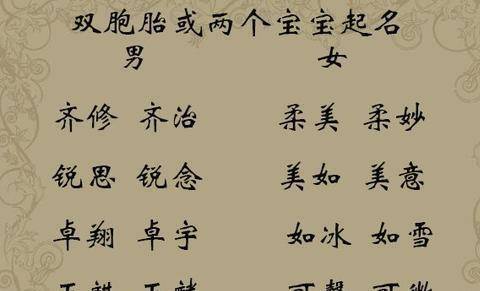 双胞胎或两个宝宝起名
男 女
齐修 齐治 柔美 柔妙
锐思 锐念 美如 美意
卓翔 卓宇 如冰 如雪